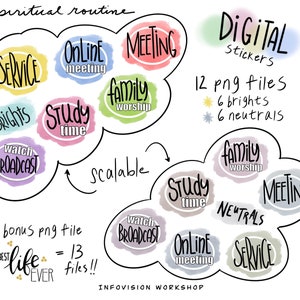 spiritual routine
DIGITAL
stickers
ONLINE
meeting
MEETING
SERVICE
family
worship
12 png files
6 brights
6 neutrals
brights
STUDY
time
watch
BROADCAST
scalable
family
worship
STUDY
time
MEETING
NEUTRALS
watch
BROADCAST
ONLINE
meeting
SERVICE
bonus png file
BEST
life
EVER
= 13
files!!
INFOVISION WORKSHOP